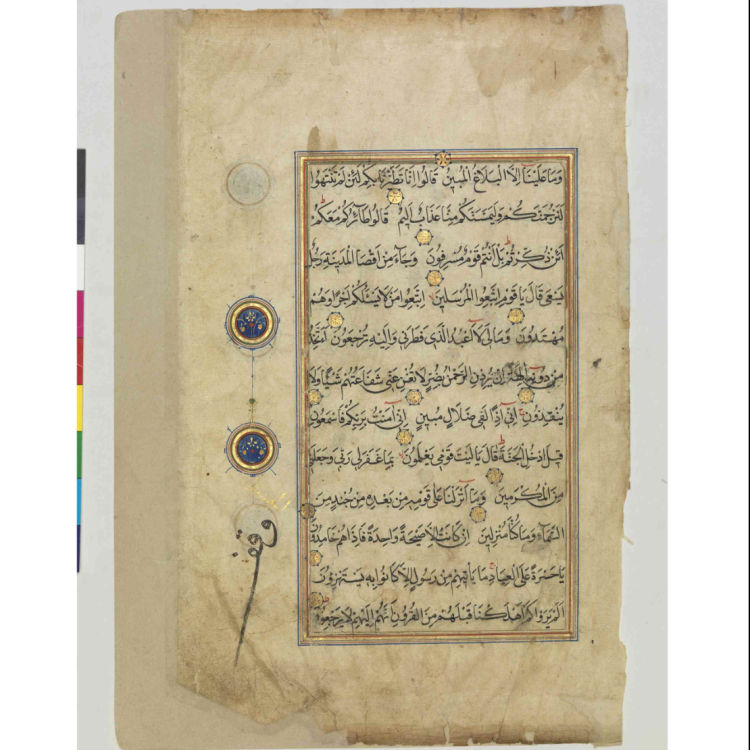 وَمَا عَلَيْنَا اِلَّا الْبَلَاغُ الْمُبِينُ قَالُوا اِنَّا تَطَيَّرْنَا بِكُمْ لَئِنْ لَمْ تَنْتَهُوا
لَنَرْجُمَنَّكُمْ وَلَيَمَسَّنَّكُمْ مِنَّا عَذَابٌ اَلِيمٌ قَالُوا طَائِرُكُمْ مَعَكُمْ
اَئِنْ ذُكِّرْتُمْ بَلْ اَنْتُمْ قَوْمٌ مُسْرِفُونَ وَجَاءَ مِنْ اَقْصَا الْمَدِينَةِ رَجُلٌ
يَسْعَى قَالَ يَا قَوْمِ اتَّبِعُوا الْمُرْسَلِينَ اتَّبِعُوا مَنْ لَا يَسْئَلُكُمْ اَجْرًا وَهُمْ
مُهْتَدُونَ وَمَا لِيَ لَا اَعْبُدُ الَّذِي فَطَرَنِي وَاِلَيْهِ تُرْجَعُونَ ءَاَتَّخِذُ
مِنْ دُونِهِ اٰلِهَةً اِنْ يُرِدْنِ الرَّحْمٰنُ بِضُرٍّ لَا تُغْنِ عَنِّي شَفَاعَتُهُمْ شَيْئًا وَلَا
يُنْقِذُونِ اِنِّي اِذًا لَفِي ضَلَالٍ مُبِينٍ اِنِّي اٰمَنْتُ بِرَبِّكُمْ فَاسْمَعُونِ
قِيلَ ادْخُلِ الْجَنَّةَ قَالَ يَا لَيْتَ قَوْمِي يَعْلَمُونَ بِمَا غَفَرَ لِي رَبِّي وَجَعَلَنِي
مِنَ الْمُكْرَمِينَ وَمَا اَنْزَلْنَا عَلَى قَوْمِهِ مِنْ بَعْدِهِ مِنْ جُنْدٍ مِنَ
السَّمَاءِ وَمَا كُنَّا مُنْزِلِينَ اِنْ كَانَتْ اِلَّا صَيْحَةً وَاحِدَةً فَاِذَا هُمْ خَامِدُونَ
يَا حَسْرَةً عَلَى الْعِبَادِ مَا يَأْتِيهِمْ مِنْ رَسُولٍ اِلَّا كَانُوا بِهِ يَسْتَهْزِؤُنَ
اَلَمْ يَرَوْا كَمْ اَهْلَكْنَا قَبْلَهُمْ مِنَ الْقُرُونِ اَنَّهُمْ اِلَيْهِمْ لَا يَرْجِعُونَ
وقف